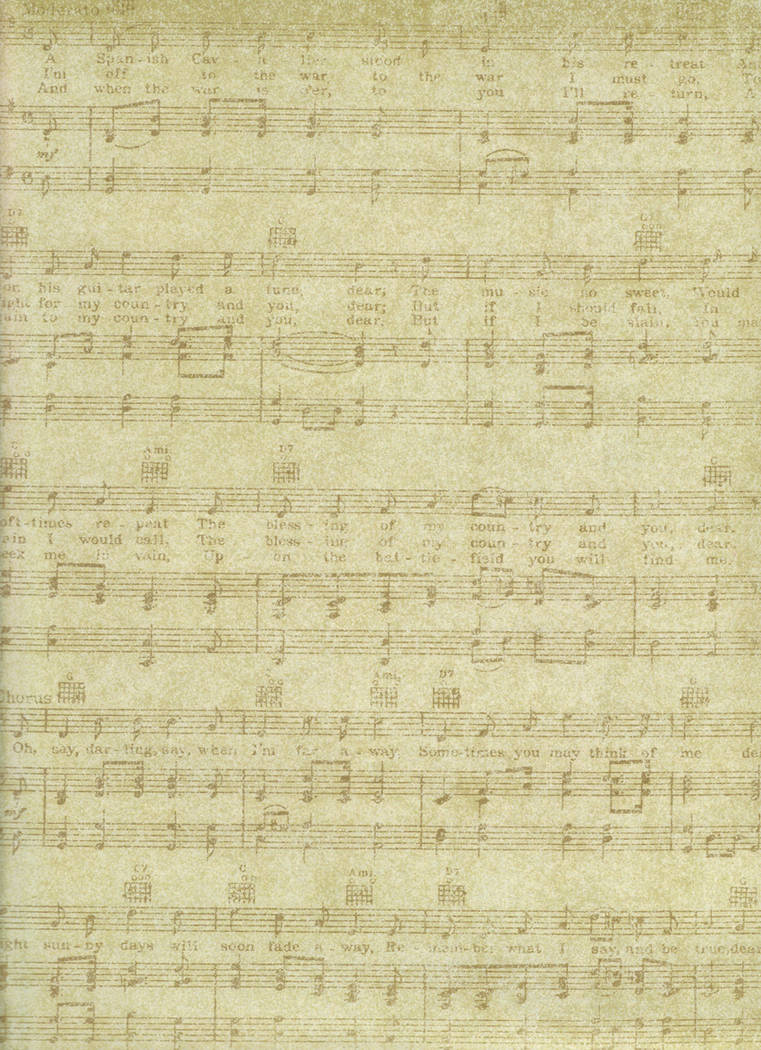 Moderato
A Span-ish Cav - a lier stood in his re - treat And
I'm off to the war to the war I must go, To
And when the war is o'er, to you I'll re - turn, A
mf
D7 G
on his gui-tar played a tune, dear; The mu - sic so sweet, Would
ight for my coun-try and you, dear; But if I should fall, In
ain to my coun-try and you, dear, But if I be slain, You ma
Ami D7
oft-times re - peat The bless - ing of my coun - try and you, dear.
ain I would call, The bless - ing of my coun - try and you, dear.
eek me in vain, Up - on the bat - tle - field you will find me.
G Ami, D7 G
Chorus
Oh, say, dar-ling, say, when I'm far a - way Some-times you may think of me de
mf
C Ami D7
ght sun-ny days will soon fade a - way, Re - mem-ber what I say, and be true, dear